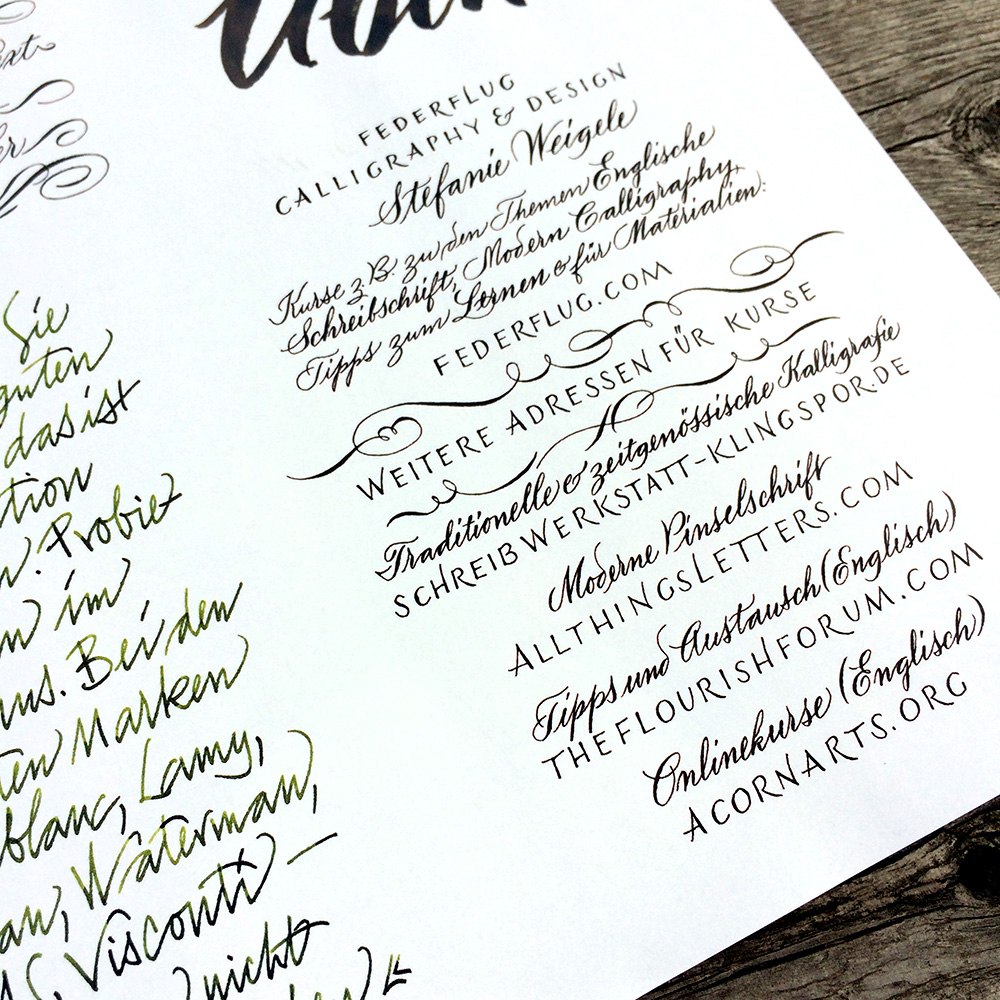 FEDERFLUG
CALLIGRAPHY & DESIGN
Stefanie Weigele
Kurse z.B. zu den Themen Englische
Schreibschrift, Modern Calligraphy,
Tipps zum Lernen & für Materialien:
FEDERFLUG.COM
WEITERE ADRESSEN FÜR KURSE
Traditionelle & zeitgenössische Kalligrafie
SCHREIBWERKSTATT-KLINGSPOR.DE
Moderne Pinselschrift
ALLTHINGSLETTERS.COM
Tipps und Austausch (Englisch)
THEFLOURISHFORUM.COM
Onlinekurse (Englisch)
ACORNARTS.ORG
Sie
guten
das ist
tion
. Probiet
im
us. Bei den
ten Marken
blanc, Lamy,
an, Waterman,
Visconti –
nicht